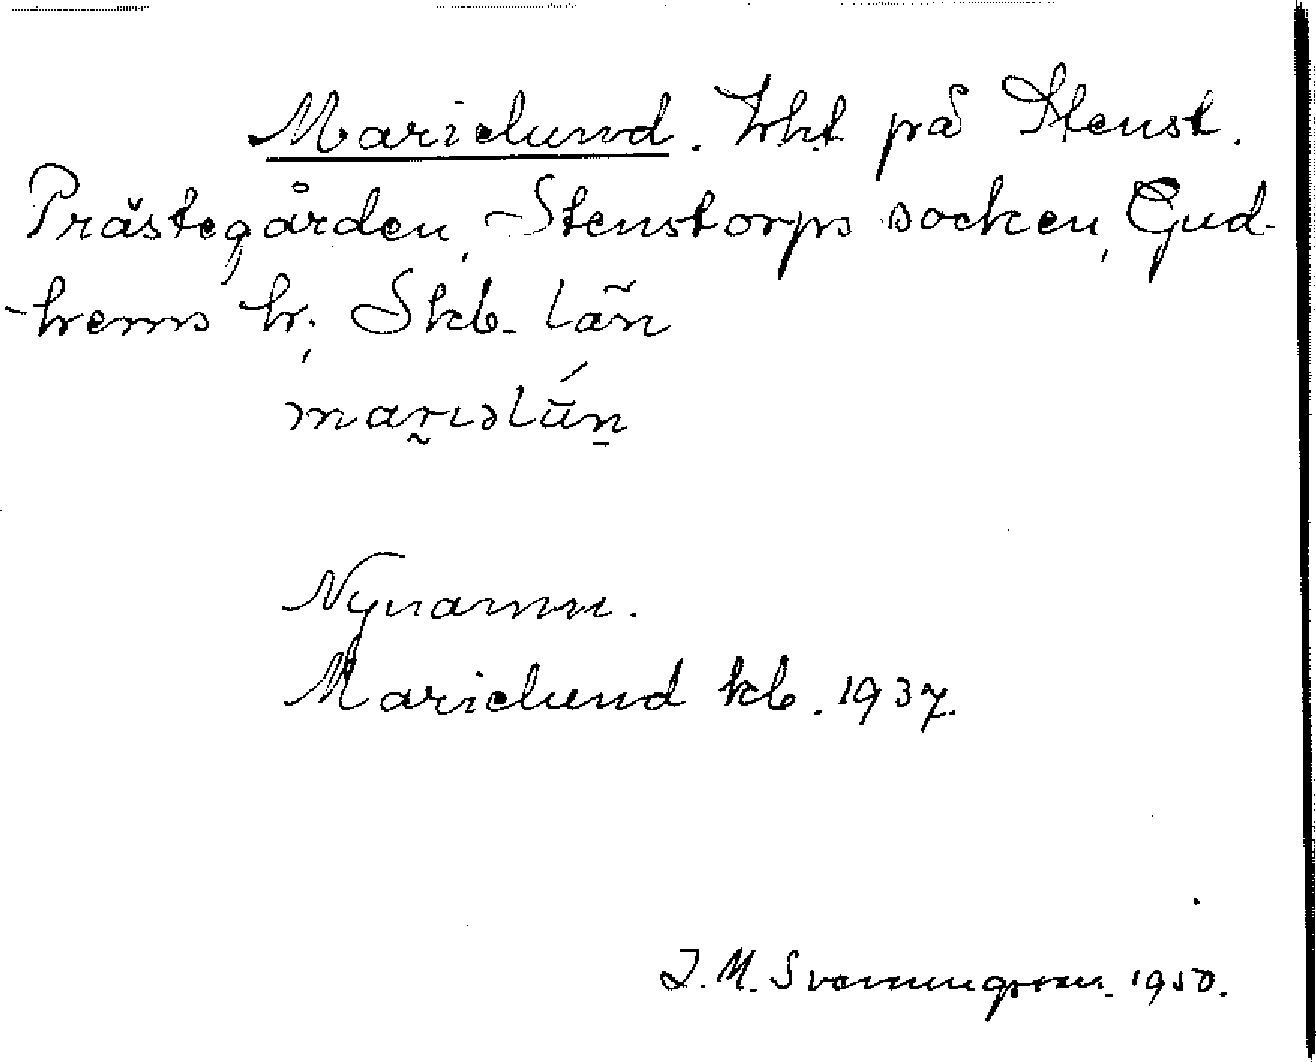 Marielund. lht på Stenst.
Prästegården, Stenstorps socken, Gud-
hems hr, Skb. län
mar̰ıəlū́n̠
Nynamn.
Marielund kb. 1937.
J. M. Svenningsson 1950.